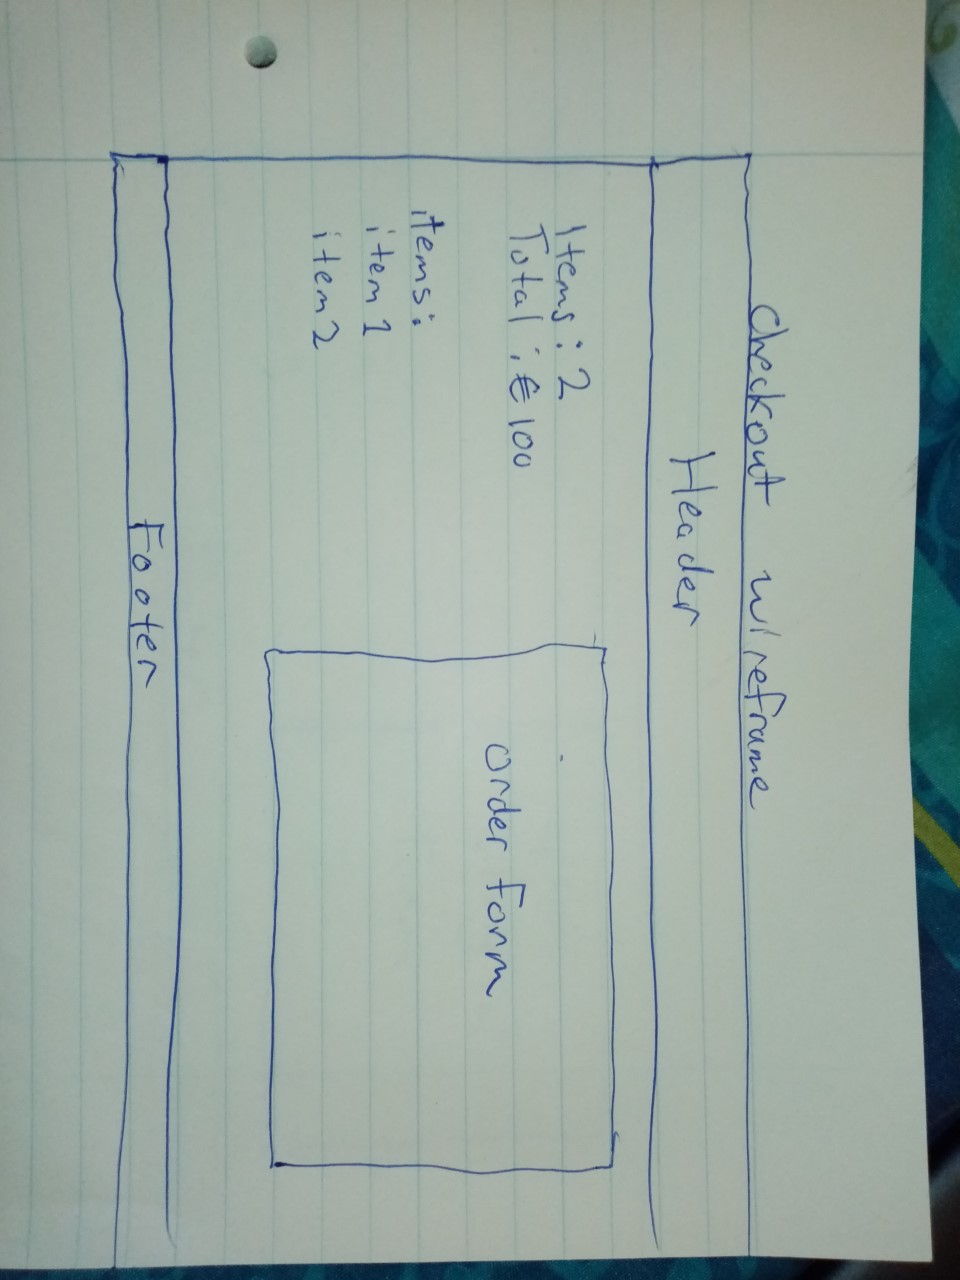 Checkout wireframe
Header
Items: 2
Total: €100
items:
item 1
item 2
order form
Footer